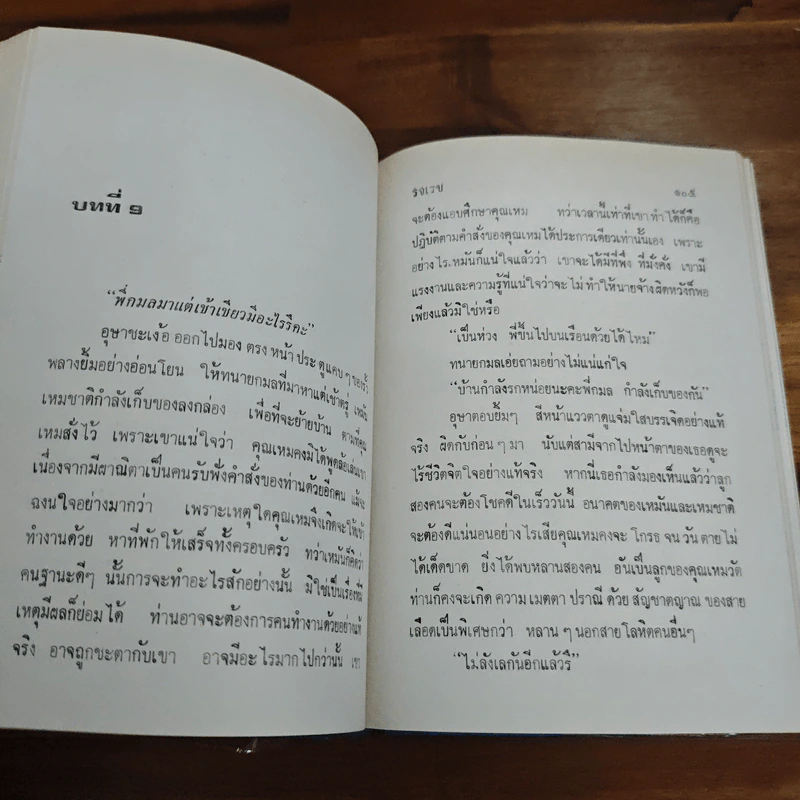 บทที่ ๑
“พี่กมลมาแต่เช้าเชียวมีอะไรรึคะ”
อุษาชะเง้อ ออกไปมอง ตรง หน้า ประ ตูแคบ ๆ ของรั้ว
พลางยิ้มอย่างอ่อนโยน ให้ทนายกมลที่มาหาแต่เช้าตรู่ เหมัน
เหมชาติกำลังเก็บของลงกล่อง เพื่อที่จะย้ายบ้าน ตามที่คุณ
เหมสั่งไว้ เพราะเขาแน่ใจว่า คุณเหมคงมิได้พูดล้อเล่นเขา
เนื่องจากมีผาณิตาเป็นคนรับฟังคำสั่งของท่านด้วยอีกคน แม้จะ
ฉงนใจอย่างมากว่า เพราะเหตุใดคุณเหมจึงเกิดจะให้เข้า
ทำงานด้วย หาที่พักให้เสร็จทั้งครอบครัว ทว่าเหมันก็คิดว่า
คนฐานะดีๆ นั้นการจะทำอะไรสักอย่างนั้น มิใช่เป็นเรื่องที่มี
เหตุมีผลก็ย่อมได้ ท่านอาจจะต้องการคนทำงานด้วยอย่างแท้
จริง อาจถูกชะตากับเขา อาจมีอะไรมากไปกว่านั้น เขา
รจเรข
๑๐๕
จะต้องแอบศึกษาคุณเหม ทว่าเวลานี้เท่าที่เขา ทำ ได้ก็คือ
ปฏิบัติตามคำสั่งของคุณเหมได้ประการเดียวเท่านั้นเอง เพราะ
อย่างไร.หมันก็แน่ใจแล้วว่า เขาจะได้มีที่พึ่ง ที่มั่งคั่ง เขามี
แรงงานและความรู้ที่แน่ใจว่าจะไม่ ทำให้นายจ้างผิดหวังก็พอ
เพียงแล้วมิใช่หรือ
“เป็นห่วง พี่ขึ้นไปบนเรือนด้วยได้ไหม”
ทนายกมลเอ่ยถามอย่างไม่แน่แก่ใจ
“บ้านกำลังรกหน่อยนะคะพี่กมล กำลังเก็บของกัน”
อุษาตอบยิ้มๆ สีหน้าแววตาดูแจ่มใสบรรเจิดอย่างแท้
จริง ผิดกับก่อนๆมา นับแต่สามีจากไปหน้าตาของเธอดูจะ
ไร้ชีวิตจิตใจอย่างแท้จริง หากนี่เธอกำลังมองเห็นแล้วว่าลูก
สองคนจะต้อง โชคดีในเร็ววันนี้ อนาคตของเหมันและเหมชาติ
จะต้องดีแน่นอนอย่างไรเสียคุณเหมคงจะ โกรธ จน วัน ตาย ไม่
ได้เด็ดขาด ยิ่งได้พบหลานสองคน อันเป็นลูกของคุณเหมวัต
ท่านก็คงจะเกิด ความ เมตตา ปราณี ด้วย สัญชาตญาณ ของสาย
เลือดเป็นพิเศษกว่า หลาน ๆ นอกสาย โลหิตคนอื่นๆ
“ไม่ลังเลกันอีกแล้วรึ”